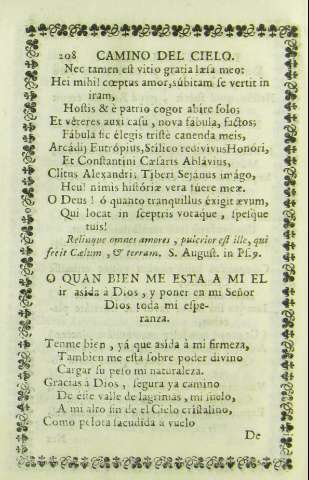 208 CAMINO DEL CIELO.
Nec tamen eſt vitio gratia læſa meo:
Hei mihi! cœptus amor, súbitam ſe vertit in
iram,
Hoſtis & è patrio cogor abire ſolo;
Et véteres auxi caſu, nova fábula, factos;
Fábula ſic élegis triſtè canenda meis,
Arcádij Eutrópius, Stilico redivivus Honóri,
Et Conſtantini Cæſaris Ablávius,
Clitus Alexandri; Tíberi Sejánus imágo,
Heu! nimis hiſtóriæ vera fuere meæ.
O Deus! ó quanto tranquillus éxigit ævum,
Qui locat in ſceptris votaque, ſpeſque
tuis!
Relinque omnes amores, pulcrior eſt ille, qui
fecit Cælum, & terram. S. Auguſt. in Pſ. 9.
O QUAN BIEN ME ESTA A MI EL
ir asida a Dios, y poner en mi Señor
Dios toda mi eſpe-
ranza.
Tenme bien, yá que asida à mi firmeza,
Tambien me eſtá ſobre poder divino
Cargar ſu peſo mi naturaleza.
Gracias à Dios, ſegura ya camino
De eſte valle de lagrimas, mi ſuelo,
A mi alto fin de el Cielo criſtalino,
Como pelota ſacudida à vuelo
De